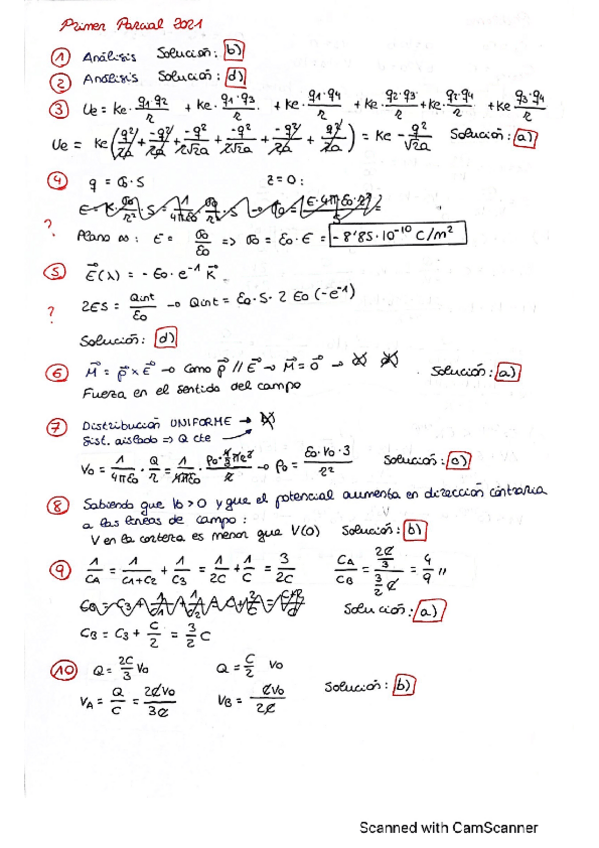 Primer Parcial 2021
① Análisis Solución: b)
② Análisis Solución: d)
③ Ue = Ke · q1·q2/r + Ke · q1·q3/r + Ke · q1·q4/r + Ke · q2·q3/r + Ke · q2·q4/r + Ke q3·q4/r
Ue = Ke (q²/2a + -q²/2a + -q²/r√2a + -q²/√2a + -q²/2a + q²/2a) = Ke - q²/√2a Solución: a)
④ q = σ·S z=0:
? Plano ∞: E = σ0/ε0 => σ0 = ε0·E = -8'85·10⁻¹⁰ C/m²
⑤ E⃗(λ) = - E0·e⁻¹ K⃗
? 2ES = Qint/ε0 → Qint = ε0·S·2 E0 (-e⁻¹)
Solución: d)
⑥ M⃗ = p⃗ x E⃗ → Como p⃗ // E⃗ → M⃗ = 0⃗ → Solución: a)
Fuerza en el sentido del campo
⑦ Distribución UNIFORME →
Sist. aislado => Q cte
V0 = 1/4πε0 · Q/r = 1/4πε0 · ρ0·4/3πr³/r → ρ0 = ε0·V0·3/r² Solución: c)
⑧ Sabiendo que V0 > 0 y que el potencial aumenta en dirección contraria
a las líneas de campo:
V en la corteza es menor que V(0) Solución: b)
⑨ 1/CA = 1/C1+C2 + 1/C3 = 1/2C + 1/C = 3/2C CA/CB = 2C/3 / 3/2 C = 4/9 //
Solución: a)
CB = C3 + C/2 = 3/2 C
⑩ Q = 2C/3 V0 Q = C/2 V0
VA = Q/C = 2CV0/3C VB = CV0/2C Solución: b)
Scanned with CamScanner